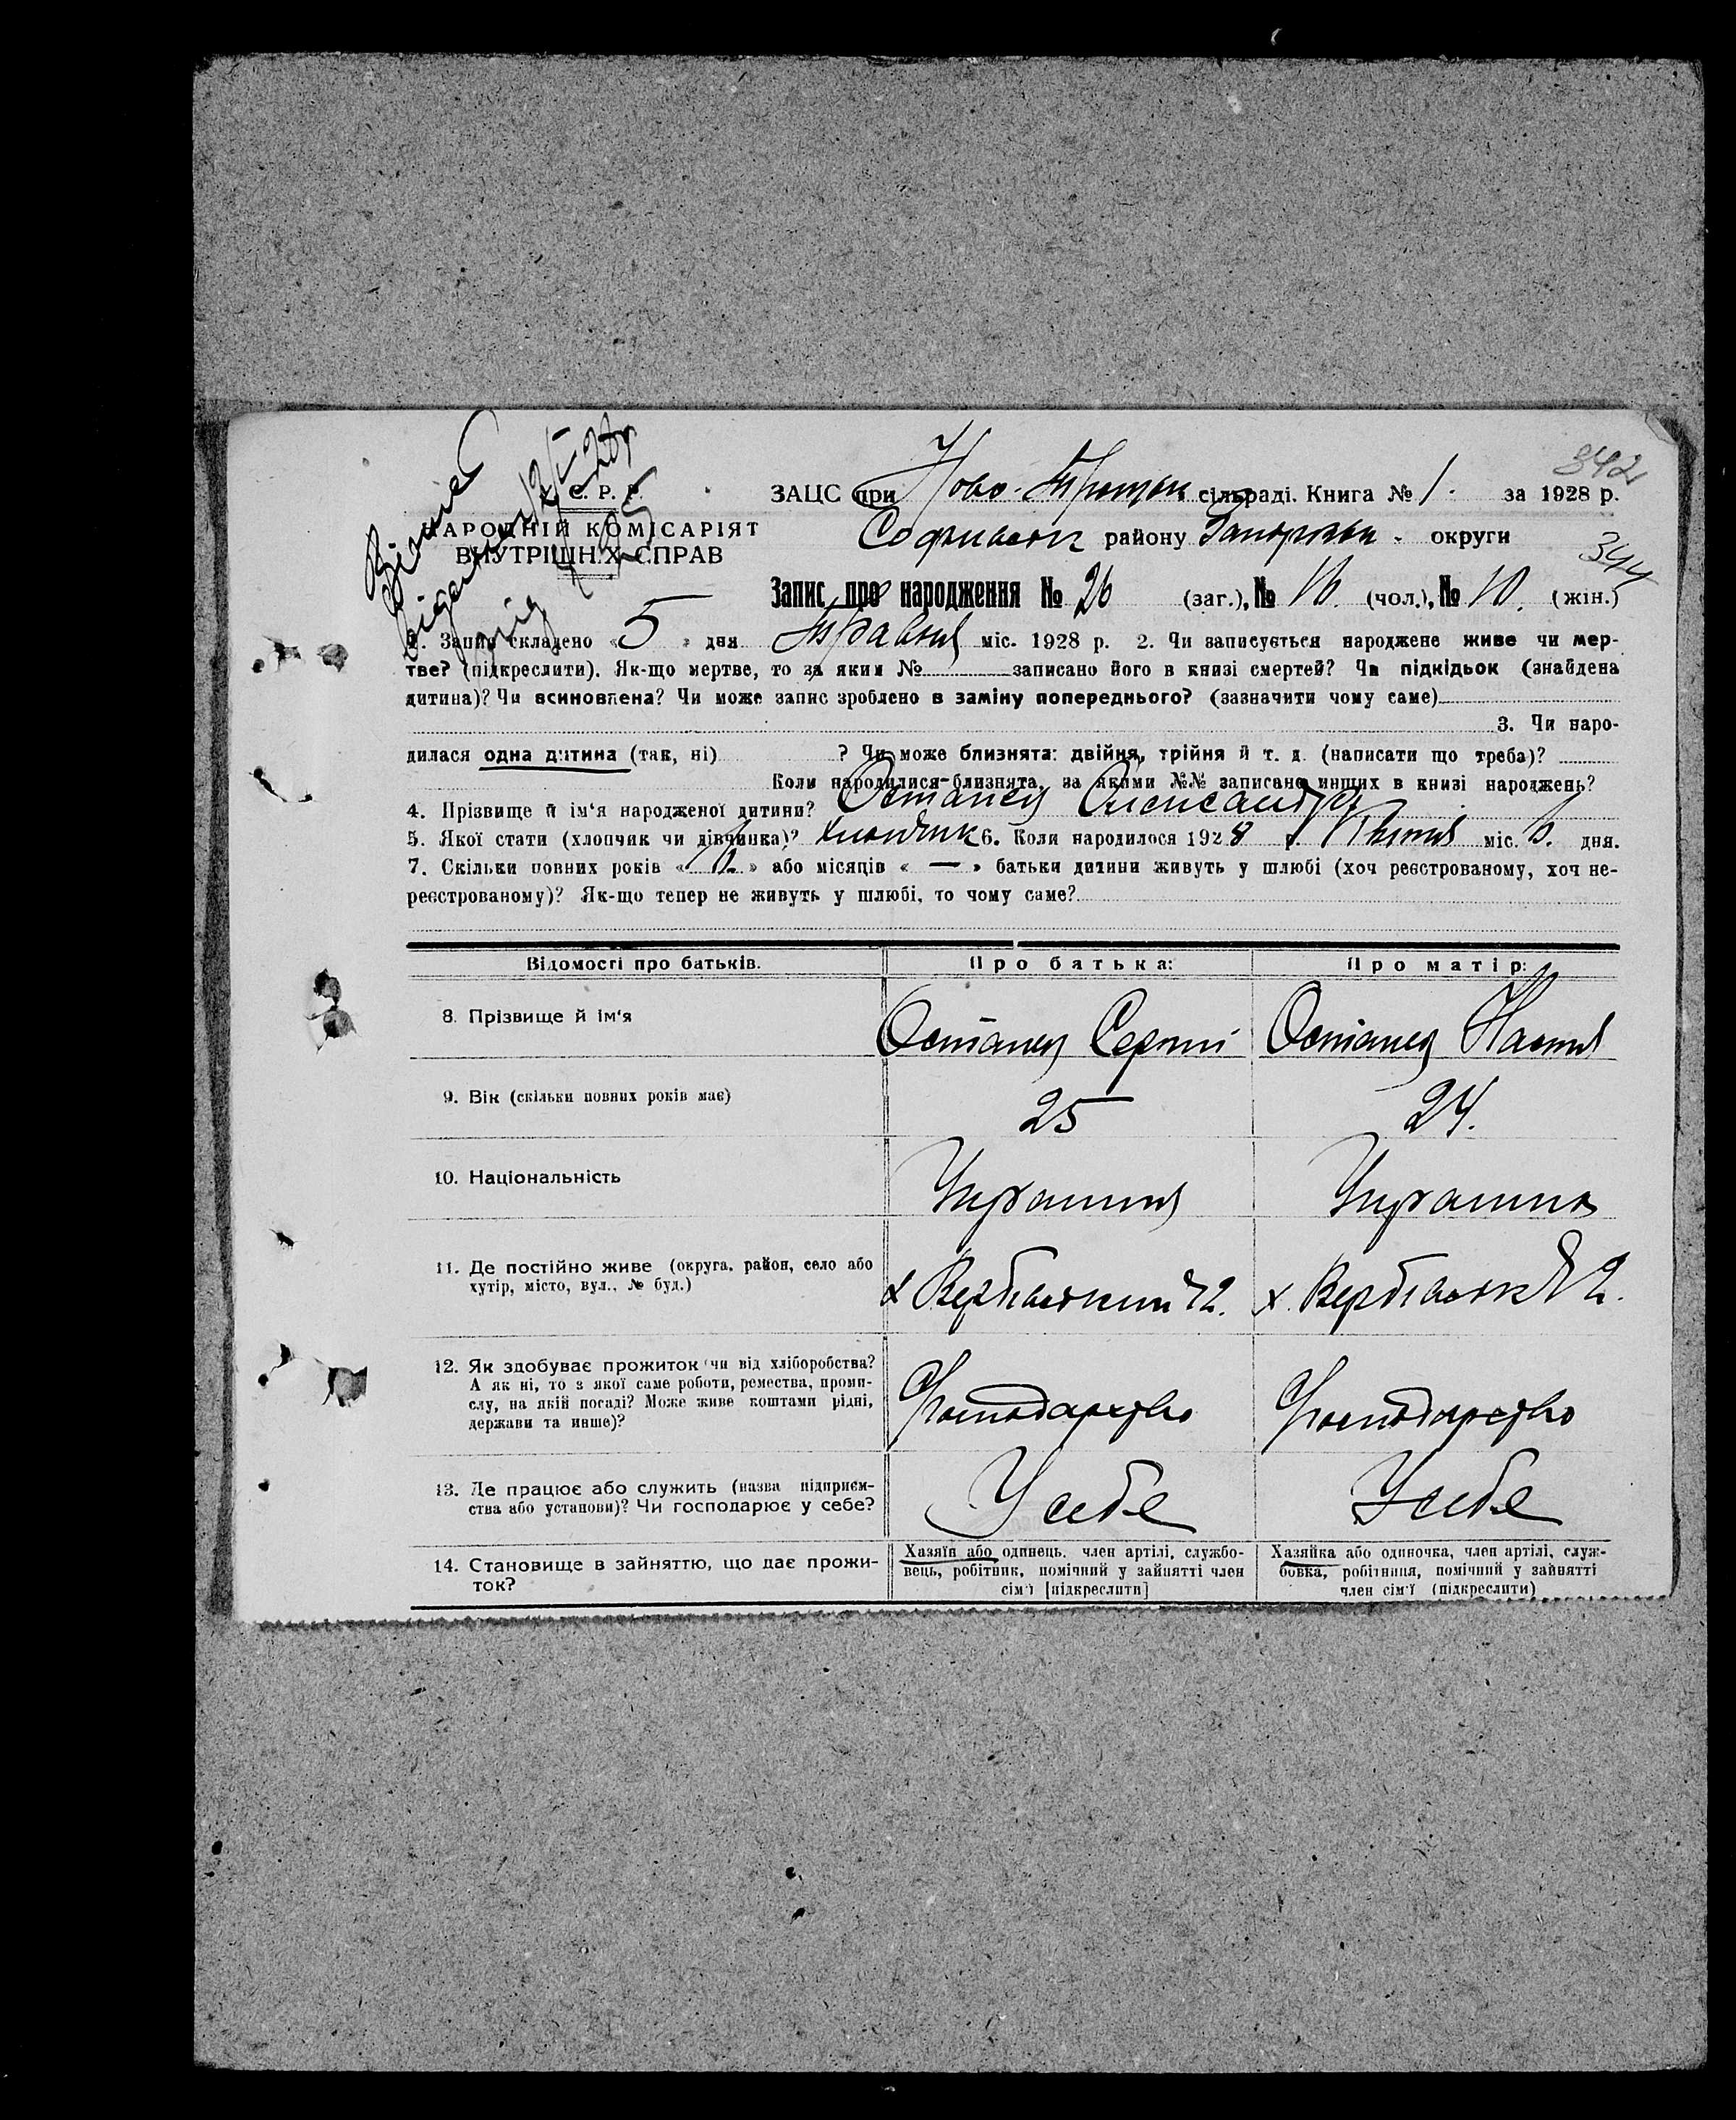 342
344
Витяг
видано
під
С. Р. Р.
НАРОДНІЙ КОМІСАРІЯТ
ВНУТРІШНІХ СПРАВ
ЗАЦС при Ново-Троїцьк. сільраді. Книга № 1. за 1928 р.
Софиевськ району Запорізьк. округи
Запис про народження № 26 (заг.), № 16. (чол.), № 10. (жін.)
1. Запис складено «5» дня Травня міс. 1928 р. 2. Чи записується народжене живе чи мер-
тве? (підкреслити). Як-що мертве, то за яким № записано його в книзі смертей? Чи підкідьок (знайдена
дитина)? Чи всиновлена? Чи може запис зроблено в заміну попереднього? (зазначити чому саме)
3. Чи наро-
дилася одна дитина (так, ні) ? Чи може близнята: двійня, трійня й т. д. (написати що треба)?
Коли народилися близнята, за якими №№ записано инших в книзі народжень?
4. Прізвище й ім'я народженої дитини? Остапец Олександр
5. Якої статі (хлопчик чи дівчинка)? Хлопчик 6. Коли народилося 1928 р. Квітня міс. дня.
7. Скільки повних років « » або місяців « — » батьки дитини живуть у шлюбі (хоч реєстрованому, хоч не-
реєстрованому)? Як-що тепер не живуть у шлюбі, то чому саме?
Відомості про батьків. Про батька: Про матір:
8. Прізвище й ім'я Остапец Сергій Остапец Настя
9. Вік (скільки повних років має) 25 24.
10. Національність Украинец Украинка
11. Де постійно живе (округа, район, село або
хутір, місто, вул., № буд.) х Вербиевский 72. х. Вербиевск 2.
12. Як здобуває прожиток чи від хліборобства?
А як ні, то з якої саме роботи, ремества, проми-
слу, на якій посаді? Може живе коштами рідні,
держави та инше)? Господарство Господарство
13. Де працює або служить (назва підприєм-
ства або установи)? Чи господарює у себе? У себе У себе
14. Становище в зайняттю, що дає прожи-
ток?
Хазяїн або одинець, член артілі, службо-
вець, робітник, помічний у зайнятті член
сім'ї [підкреслити]
Хазяйка або одиночка, член артілі, служ-
бовка, робітниця, помічний у зайнятті
член сім'ї (підкреслити)